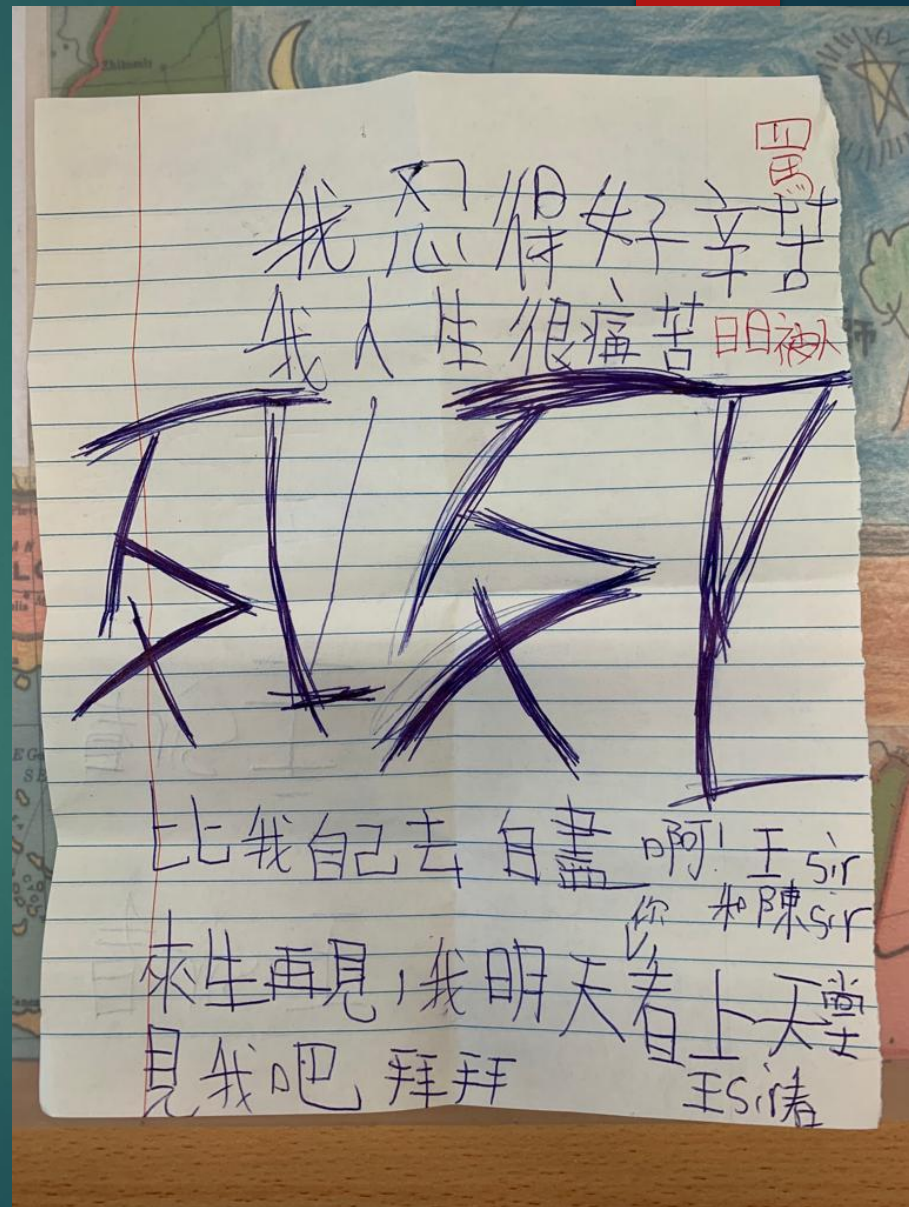 罵
我忍得好辛苦
我人生很痛苦 日日被人
死死
比我自己去自盡啊! 王sir
和陳sir
你
來生再見,我明天看上天堂
見我吧 拜拜
王Sir